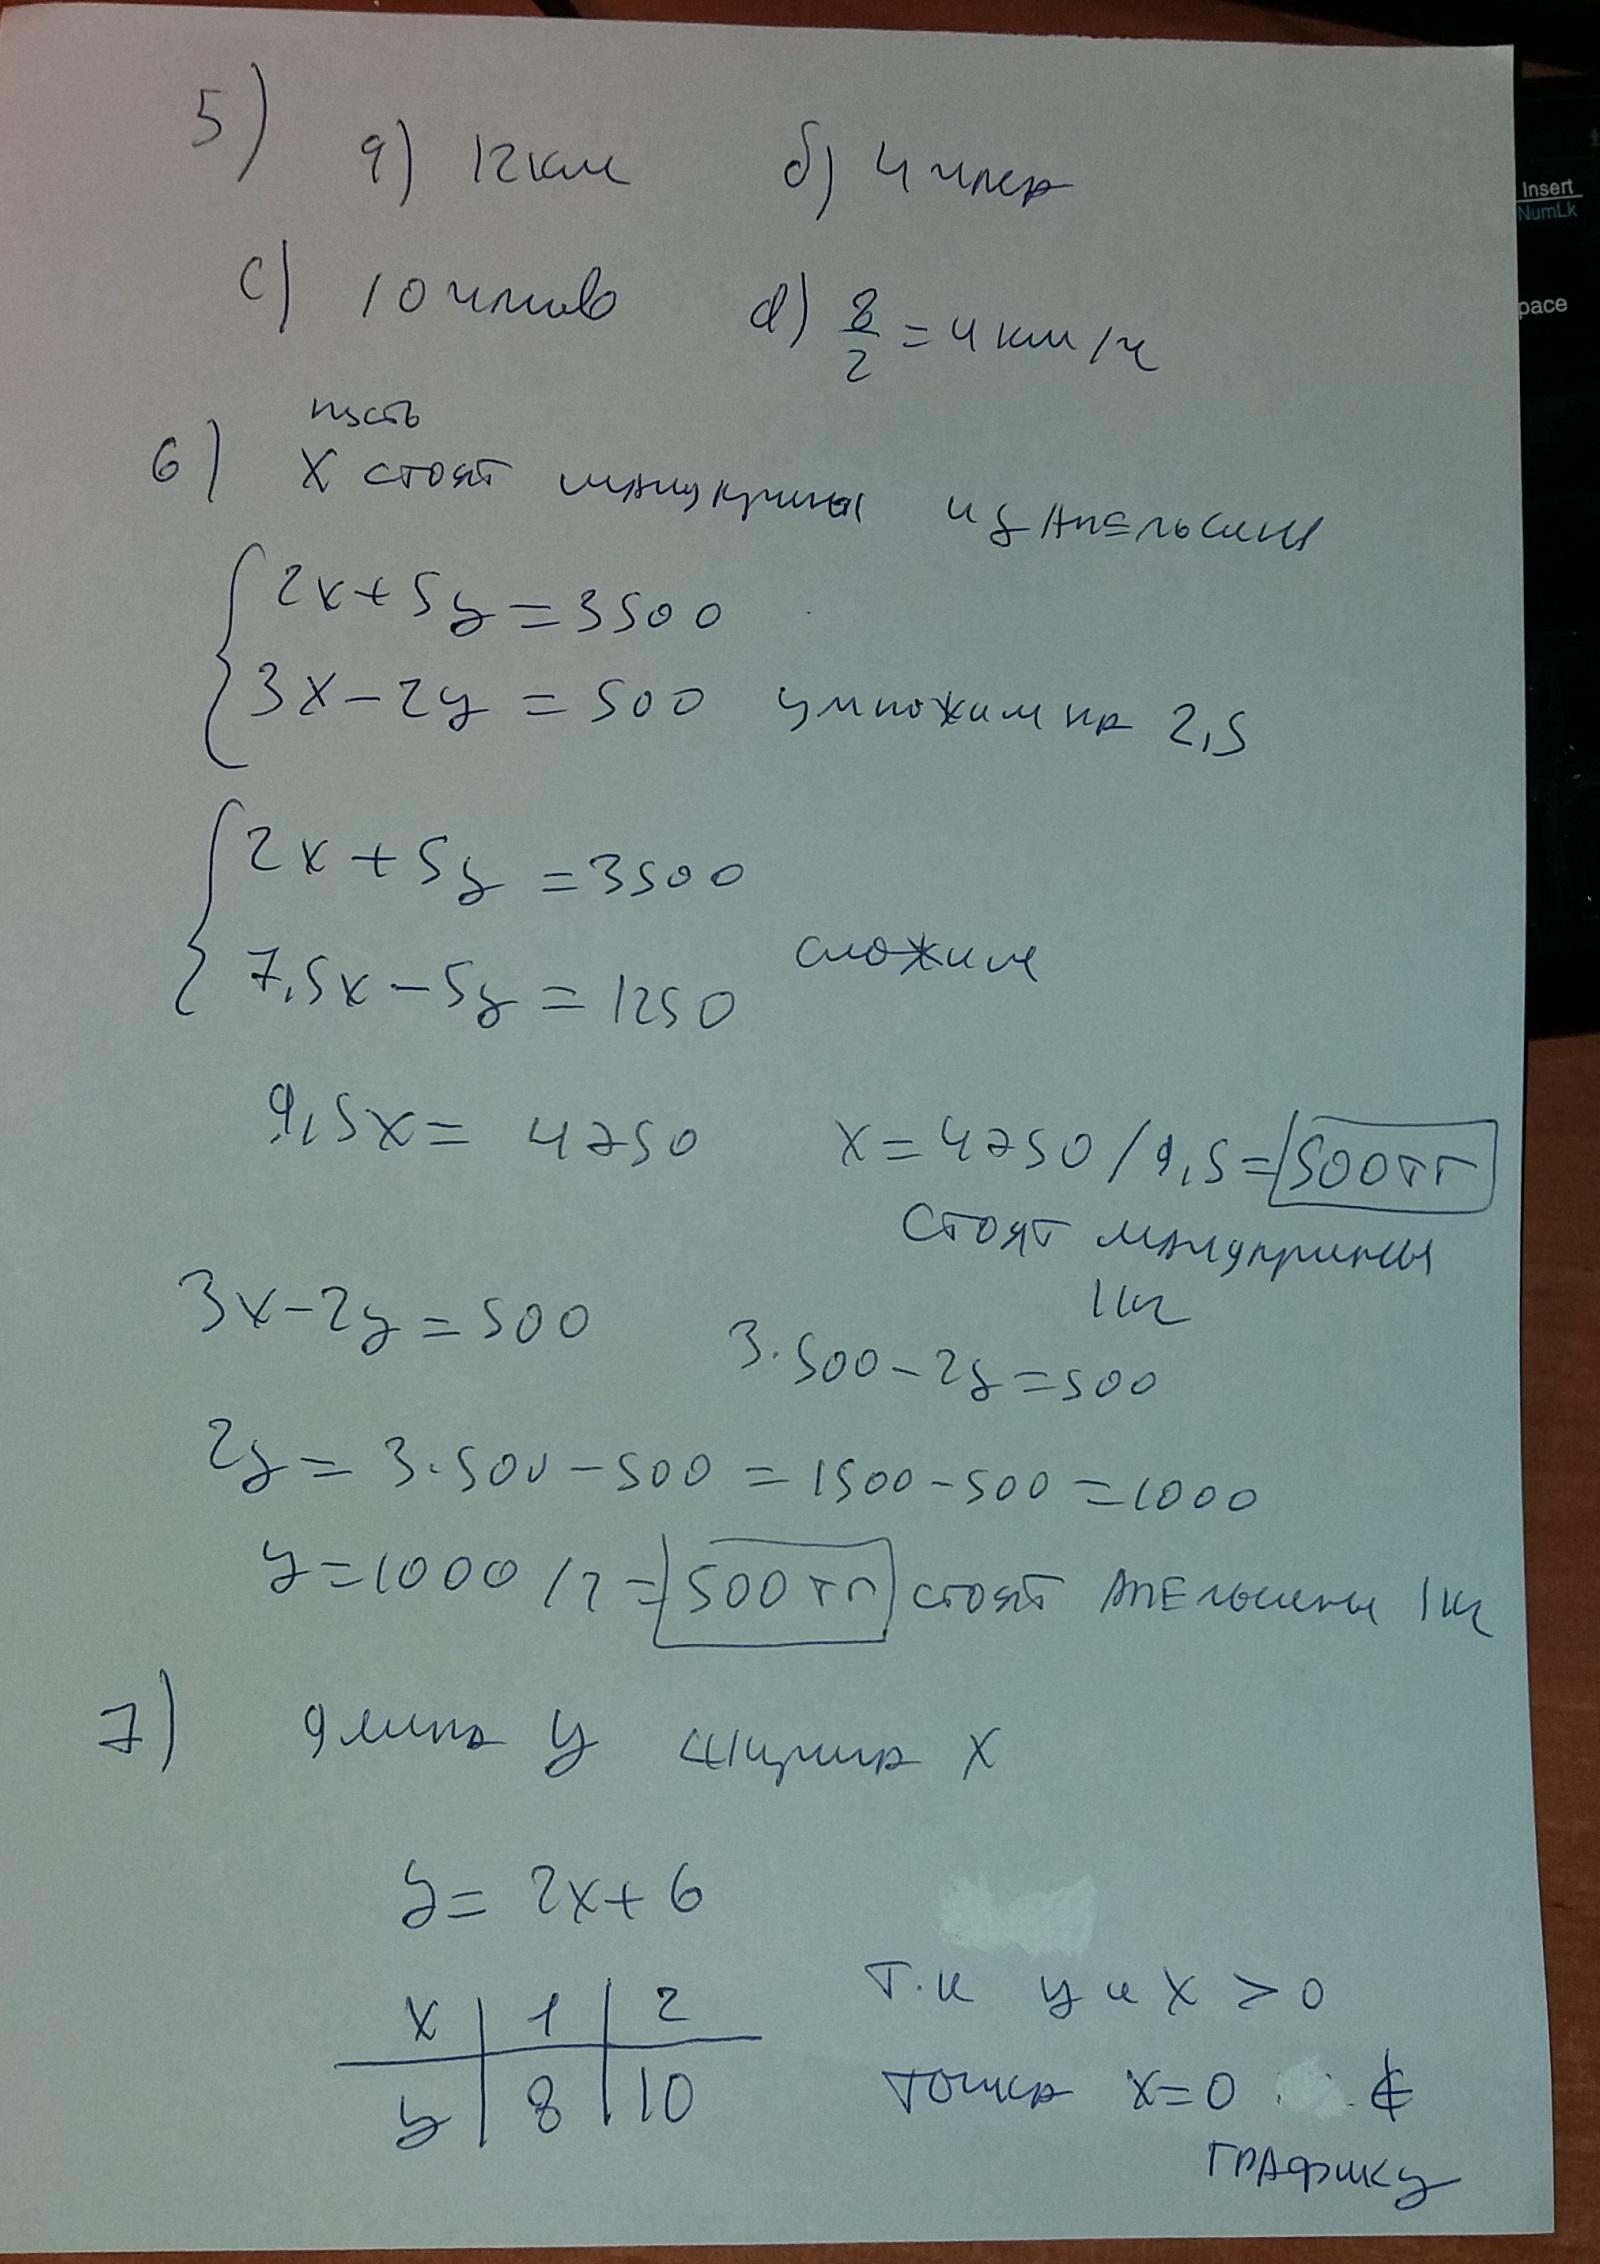 5) а) 12 км б) 4 часа
с) 10 часов d) 8/2 = 4 км/ч
пусть
6) x стоят мандарины и y апельсины
2x + 5y = 3500
3x - 2y = 500 умножим на 2,5
2x + 5y = 3500
7,5x - 5y = 1250 сложим
9,5x = 4750 x = 4750 / 9,5 = 500 тг
стоят мандарины
1 кг
3x - 2y = 500 3·500 - 2y = 500
2y = 3·500 - 500 = 1500 - 500 = 1000
y = 1000 / 2 = 500 тг стоят апельсины 1 кг
7) длина y ширина x
y = 2x + 6
x 1 2
y 8 10
т.к y и x > 0
точка x = 0 ∉
графику
Insert
NumLk
pace